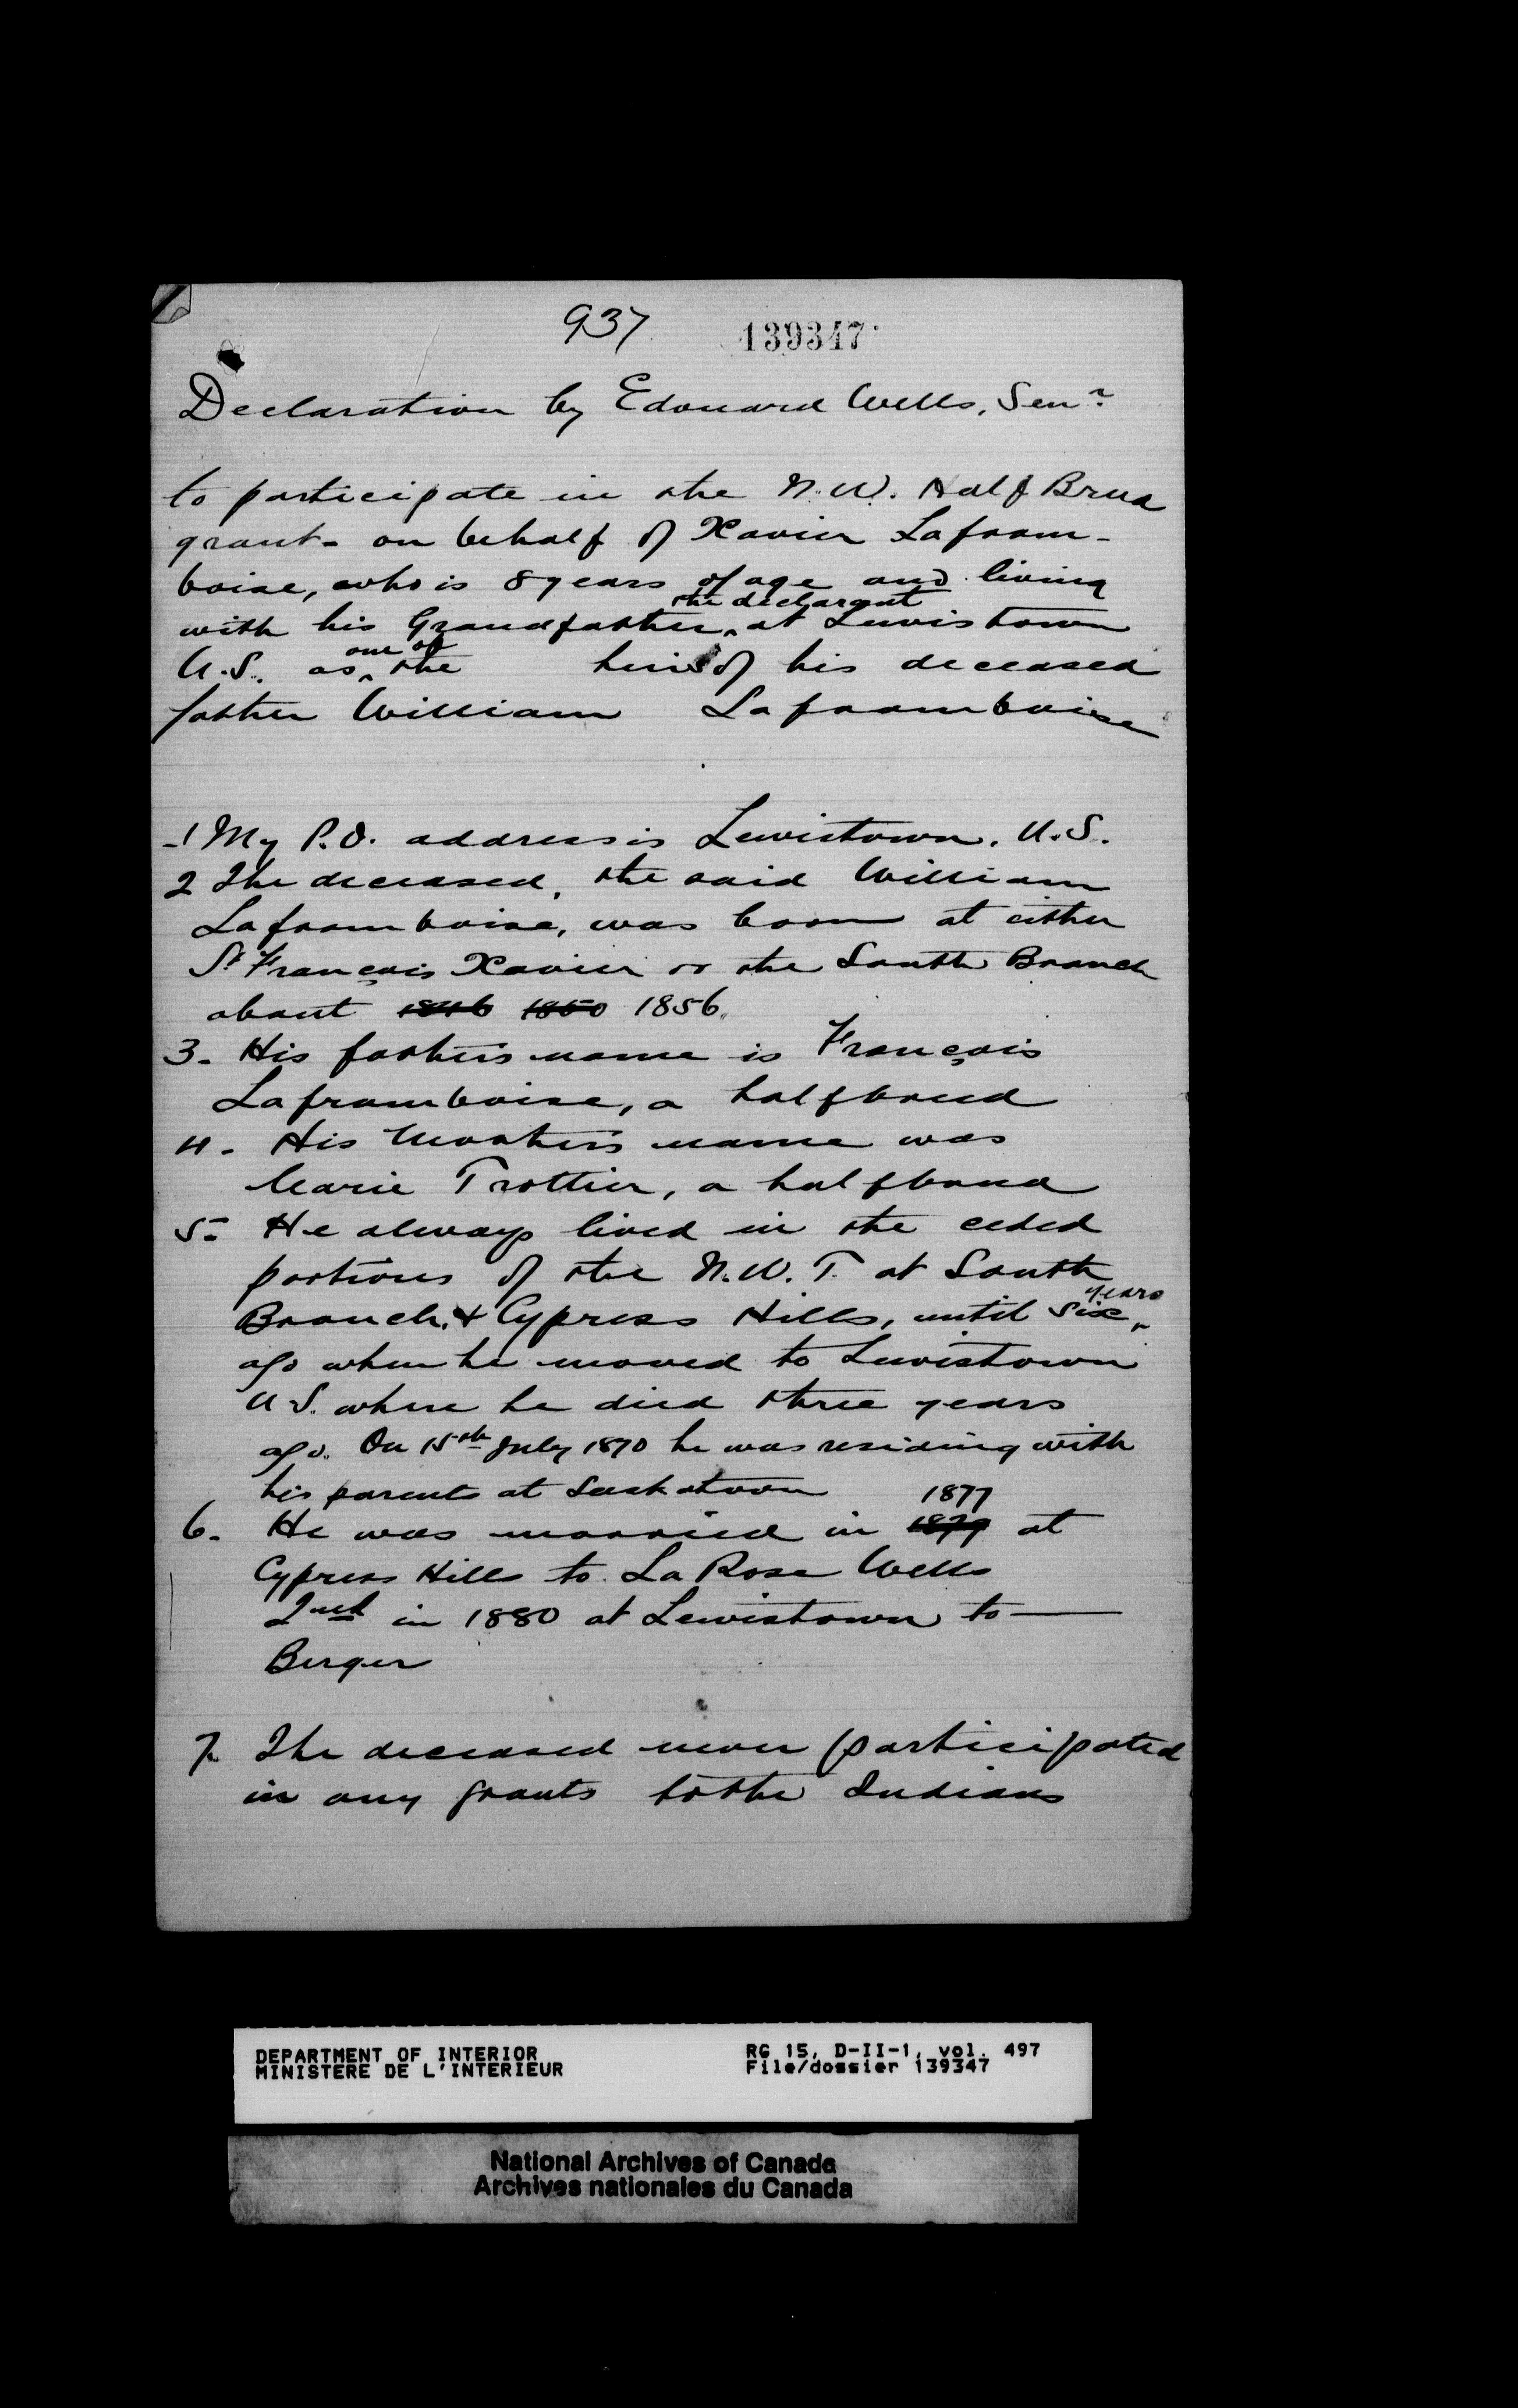 937 139347
Declaration by Edouard Wells, Senr
to participate in the N.W. Half Breed
grant - on behalf of Xavier Lafram-
boise, who is 8 years of age and living
the declarant
with his Grandfather ^ at Lewistown
one of
U.S. as ^ the heirs of his deceased
father William Laframboise
-1 My P.O. address is Lewistown. U.S.
2 The deceased, the said William
Laframboise, was born at either
St François Xavier or the South Branch
about 1846 1850 1856.
3. His fathers name is François
Laframboise, a halfbreed
4. His Mothers name was
Marie Trottier, a halfbreed
5. He always lived in the ceded
portions of the N.W.T. at South
years
Branch, & Cypress Hills, until six ^
ago when he moved to Lewistown
U.S. where he died three years
ago. On 15th July 1870 he was residing with
his parents at Saskatoon
1877
6. He was married in 1879 at
Cypress Hills to La Rose Wells
2nd in 1880 at Lewistown to —
Berger
7. The deceased never participated
in any grants to the Indians
DEPARTMENT OF INTERIOR RG 15, D-II-1, vol. 497
MINISTERE DE L'INTERIEUR File/dossier 139347
National Archives of Canada
Archives nationales du Canada